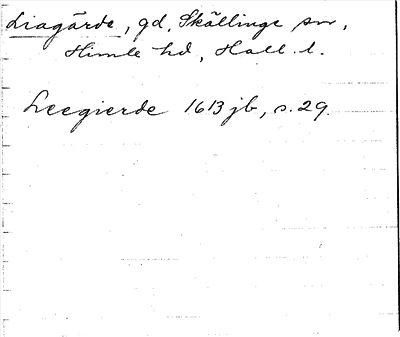 Liagärde, gd, Skällinge sn,
Himle hd, Hall. l.
Leegierde 1613 jb, s. 29.